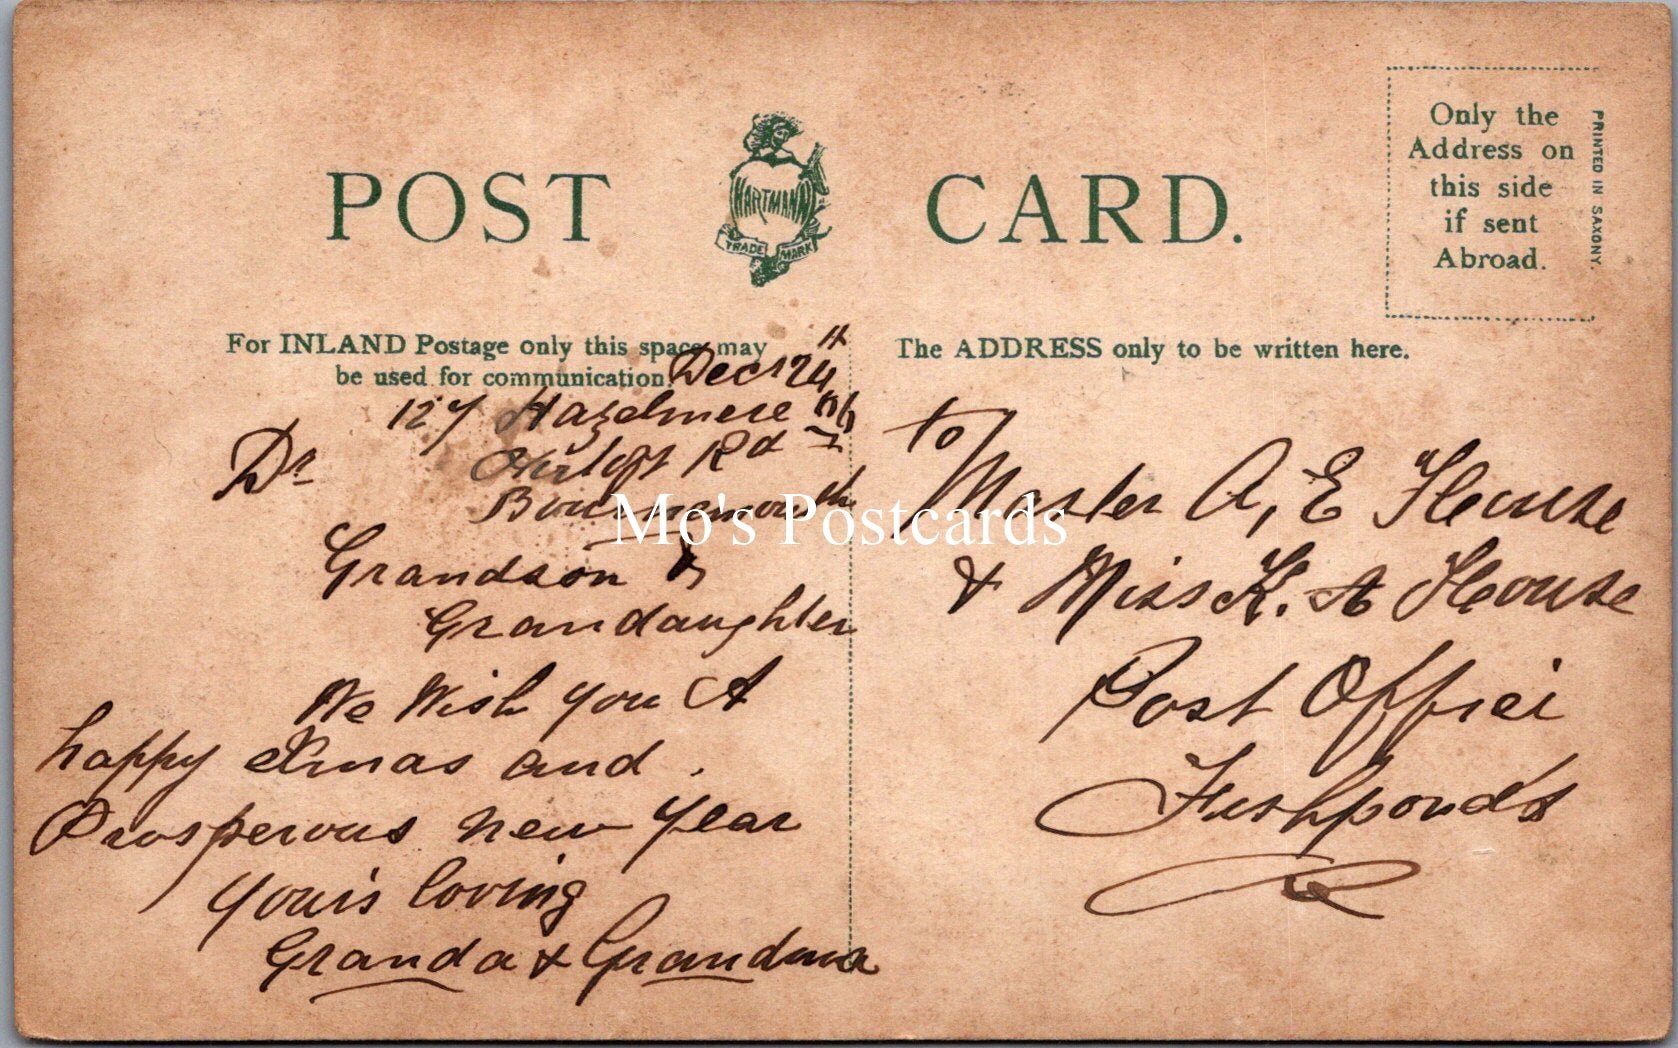 POST CARD.
HARTMANN
TRADE MARK
Only the
Address on
this side
if sent
Abroad.
PRINTED IN SAXONY.
For INLAND Postage only this space may
be used for communication.
Dec 24th
127 Hazelmere
Rd
Bournemouth
Dr
Grandson &
Grandaughter
We Wish you A
happy Xmas and
Prosperous new year
your's loving
Granda & Grandma
The ADDRESS only to be written here.
to
Master A, E House
& Miss K. A House
Post Office
Fishponds
Mo's Postcards